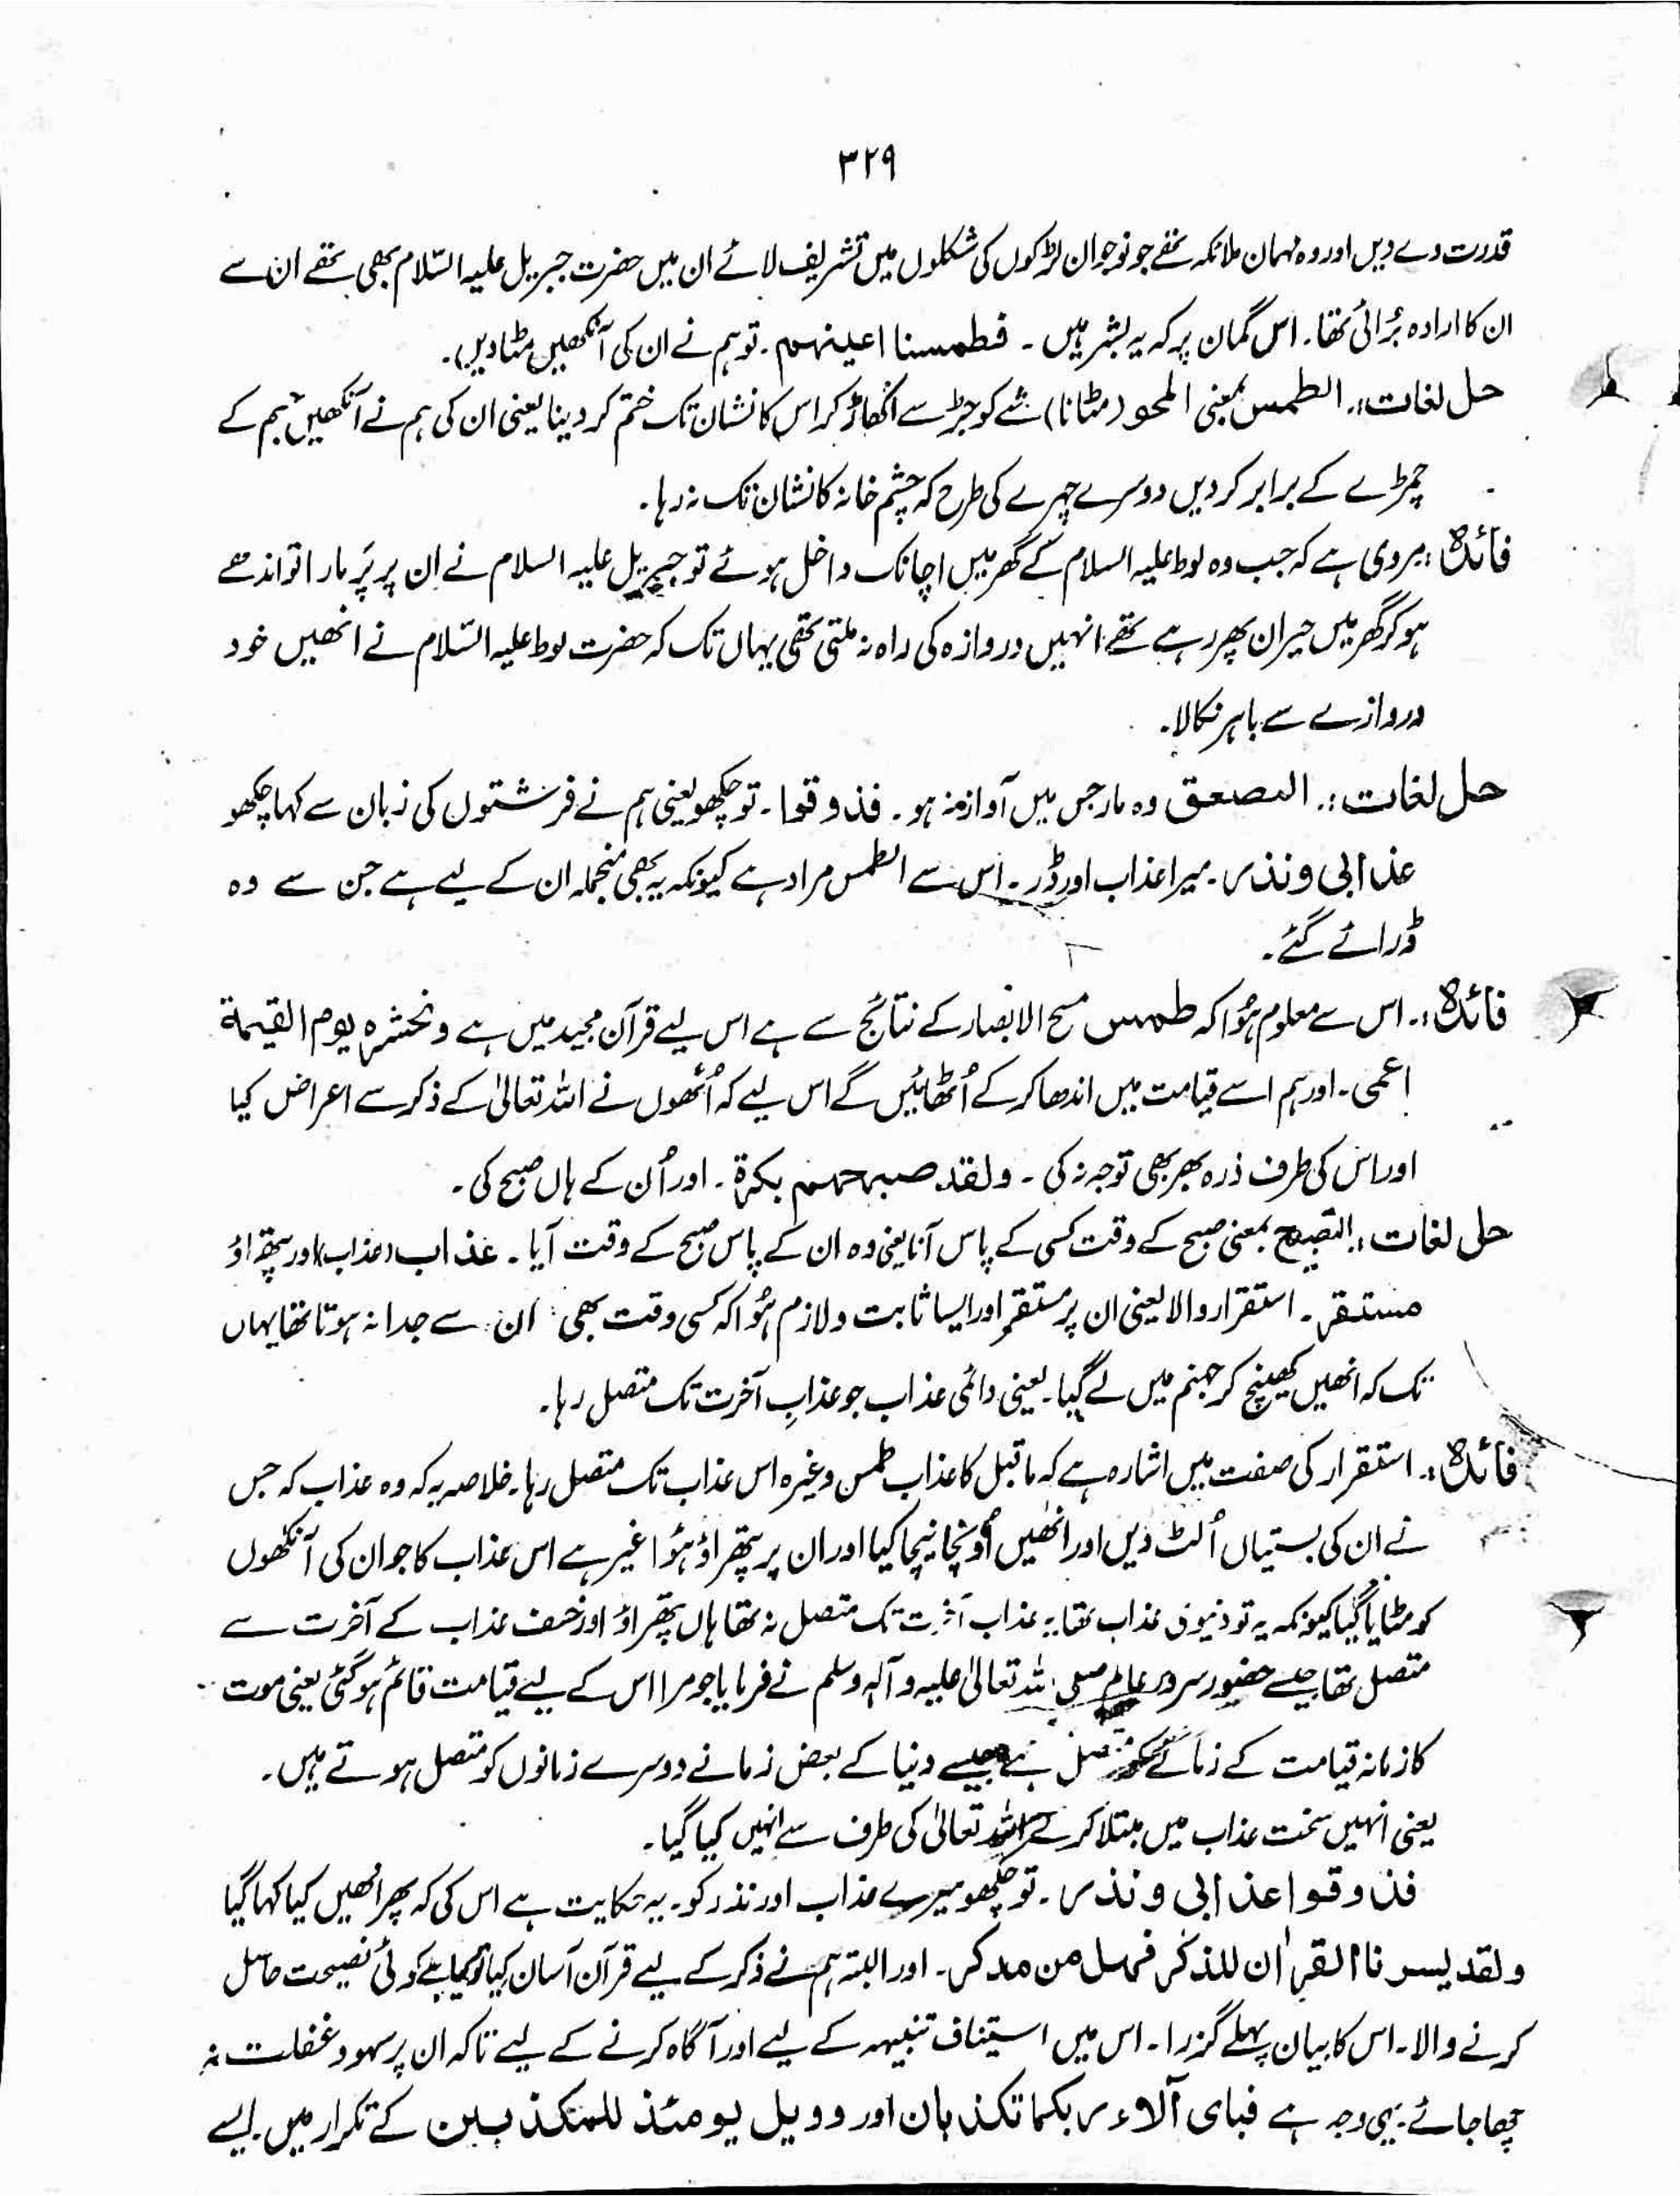 ۳۲۹
قدرت دے دیں اور وہ مہمان ملائکہ تھے جو نوجوان لڑکوں کی شکلوں میں تشریف لائے ان میں حضرت جبریل علیہ السّلام بھی تھے ان سے
ان کا ارادہ بُرائی تھا۔ اس گمان پر کہ یہ بشر ہیں ۔ فطمسنا اعینہم ۔ تو ہم نے ان کی آنکھیں مٹا دیں۔
حل لغات :۔ الطمس بمعنی المحو (مٹانا) شے کو جڑ سے اکھاڑ کر اس کا نشان تک ختم کر دینا یعنی ان کی ہم نے آنکھیں جسم کے
چمڑے کے برابر کر دیں دوسرے چہرے کی طرح کہ چشم خانہ کا نشان تک نہ رہا ۔
فائدہ : مروی ہے کہ جب وہ لوط علیہ السلام کے گھر میں اچانک داخل ہوئے تو جبریل علیہ السلام نے ان پر پَر مارا تو اندھے
ہو کر گھر میں حیران پھر رہے تھے انہیں دروازہ کی راہ نہ ملتی تھی یہاں تک کہ حضرت لوط علیہ السّلام نے انھیں خود
دروازے سے باہر نکالا۔
حل لغات :۔ الصعق وہ مار جس میں آواز نہ ہو ۔ فذوقوا ۔ تو چکھو یعنی ہم نے فرشتوں کی زبان سے کہا چکھو
عذابی ونذر ۔ میرا عذاب اور ڈر ۔ اس سے الطمس مراد ہے کیونکہ یہ بھی منجملہ ان کے لیے ہے جن سے وہ
ڈرائے گئے ۔
فائدہ :۔ اس سے معلوم ہُوا کہ طمس مسح الابصار کے نتائج سے ہے اس لیے قرآن مجید میں ہے ونحشرہ یوم القیمۃ
اعمی ۔ اور ہم اسے قیامت میں اندھا کر کے اُٹھائیں گے اس لیے کہ اُنھوں نے اللہ تعالیٰ کے ذکر سے اعراض کیا
اور اس کی طرف ذرہ بھر بھی توجہ نہ کی ۔ ولقد صبحہم بکرۃ ۔ اور اُن کے ہاں صبح کی ۔
حل لغات :۔ التصبیح بمعنی صبح کے وقت کسی کے پاس آنا یعنی وہ ان کے پاس صبح کے وقت آیا ۔ عذاب (عذاب) اور پتھراؤ
مستقر ۔ استقرار والا یعنی ان پر مستقر اور ایسا ثابت و لازم ہُوا کہ کسی وقت بھی ان سے جدا نہ ہوتا تھا یہاں
تک کہ انھیں کھینچ کر جہنم میں لے گیا ۔ یعنی دائمی عذاب جو عذابِ آخرت تک متصل رہا ۔
فائدہ :۔ استقرار کی صفت میں اشارہ ہے کہ ماقبل کا عذاب طمس وغیرہ اس عذاب تک متصل رہا ۔ خلاصہ یہ کہ وہ عذاب کہ جس
نے ان کی بستیاں اُلٹ دیں اور انھیں اُونچا نیچا کیا اور ان پر پتھراؤ ہُوا غیر ہے اس عذاب کا جو ان کی آنکھوں
کو مٹایا گیا کیونکہ یہ تو دنیوی عذاب تھا یہ عذاب آخرت تک متصل نہ تھا ہاں پتھراؤ اور خسف عذاب کے آخرت سے
متصل تھا جیسے حضور سرور عالم صلی اللہ تعالیٰ علیہ وآلہ وسلم نے فرمایا جو مرا اس کے لیے قیامت قائم ہو گئی یعنی موت
کا زمانہ قیامت کے زمانے متصل ہے جیسے دنیا کے بعض زمانے دوسرے زمانوں کو متصل ہوتے ہیں ۔
یعنی انہیں سخت عذاب میں مبتلا کر کے اللہ تعالیٰ کی طرف سے انہیں کیا گیا ۔
فذوقوا عذابی ونذر ۔ تو چکھو میرے عذاب اور نذر کو ۔ یہ حکایت ہے اس کی کہ پھر انھیں کیا کہا گیا
ولقد یسرنا القراٰن للذکر فہل من مدکر ۔ اور البتہ ہم نے ذکر کے لیے قرآن آسان کیا تو کیا ہے کوئی نصیحت حاصل
کرنے والا ۔ اس کا بیان پہلے گزرا ۔ اس میں استیناف تنبیہہ کے لیے اور آگاہ کرنے کے لیے تاکہ ان پر سہو و غفلت نہ
چھا جائے ۔ یہی وجہ ہے فبای آلاء ربکما تکذبان اور وویل یومئذ للمکذبین کے تکرار میں ۔ ایسے